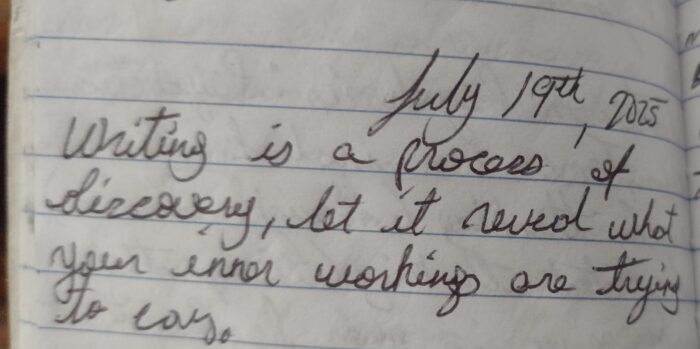 July 19th, 2025
Writing is a process of
discovery, let it reveal what
your inner workings are trying
to say.